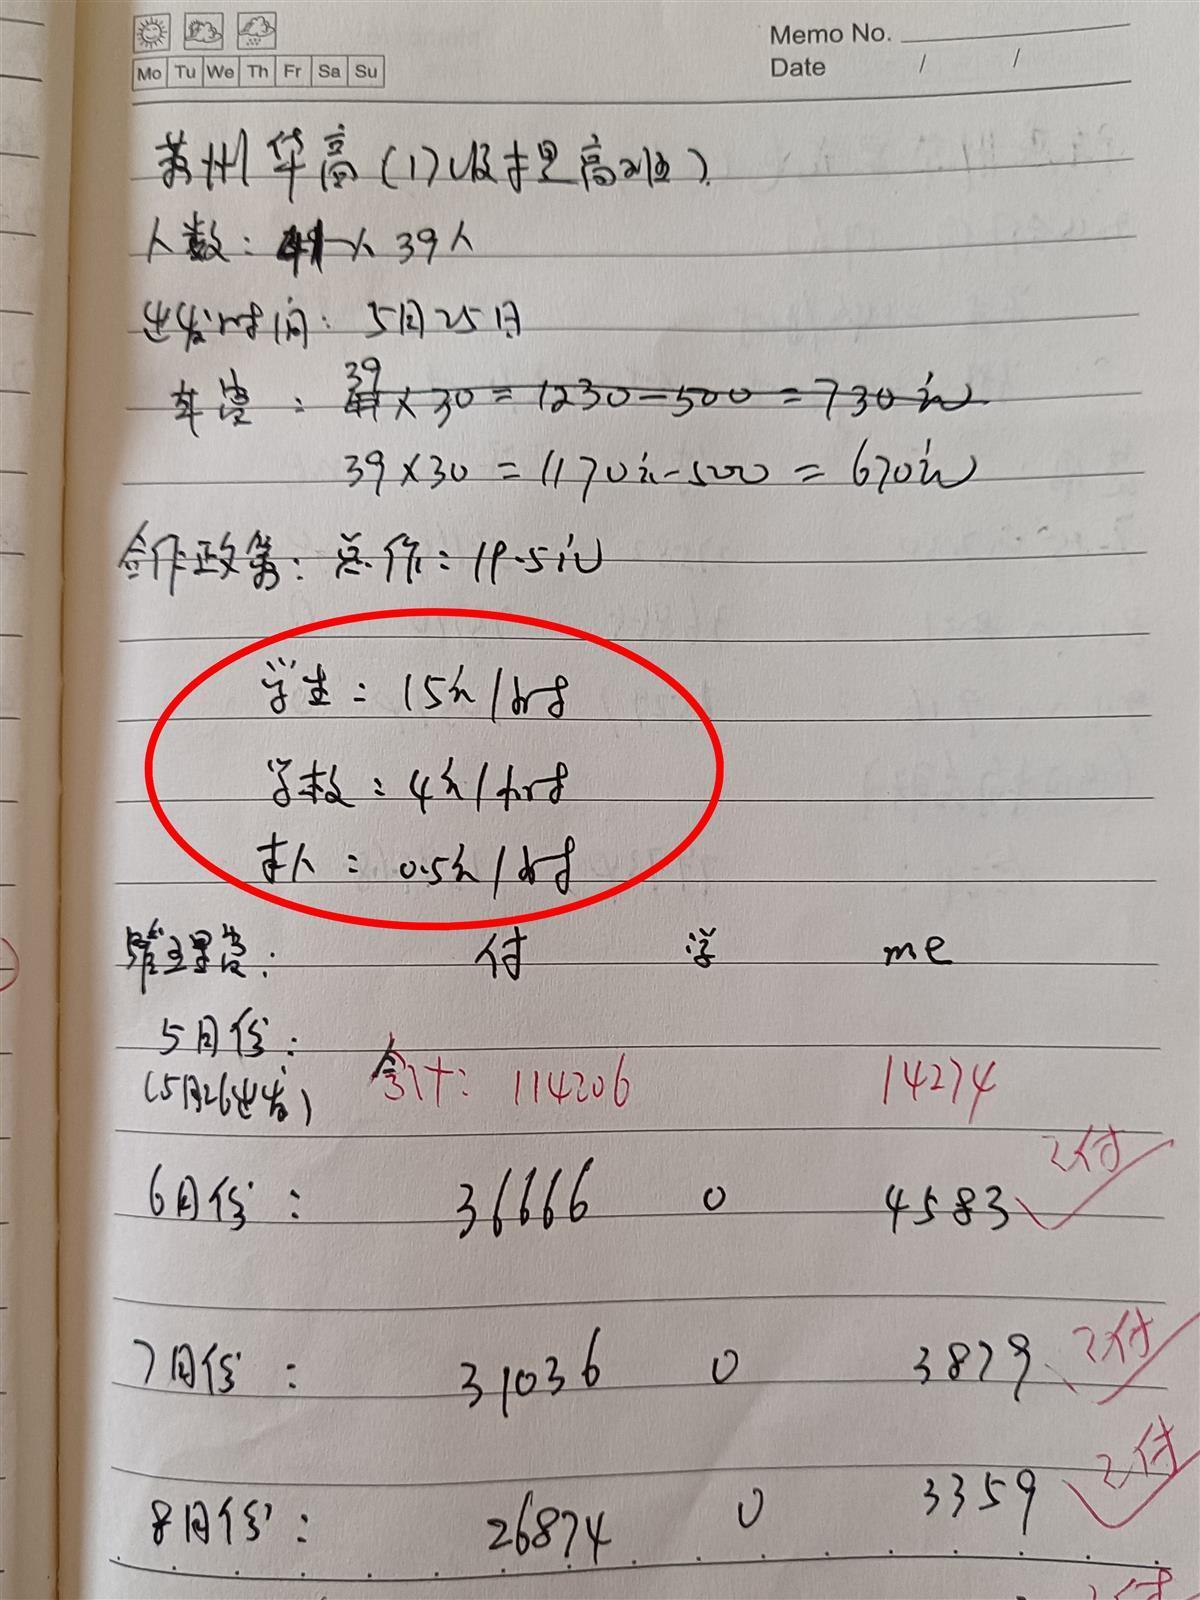 Memo No.
Mo Tu We Th Fr Sa Su
Date / /
苏州华高(1)
人数: 39人
出发时间: 5月25日
车费: 39 ×30=1230-500=730元
39×30=1170元-500=670元
合作政策: 总价: 19.5元
学生: 15元/时
学校: 4元/时
本人: 0.5元/时
管理费: 付 学 me
5月份:
(5月26出发) 合计: 114206 14274
6月份: 36666 0 4583 已付
7月份: 31036 0 3879 已付
8月份: 26874 0 3359 已付